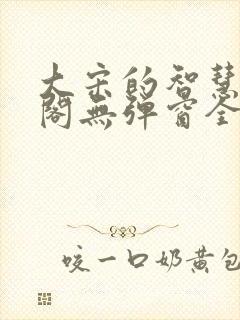 大宋的智慧
阁无弹窗全
咬一口奶黄包